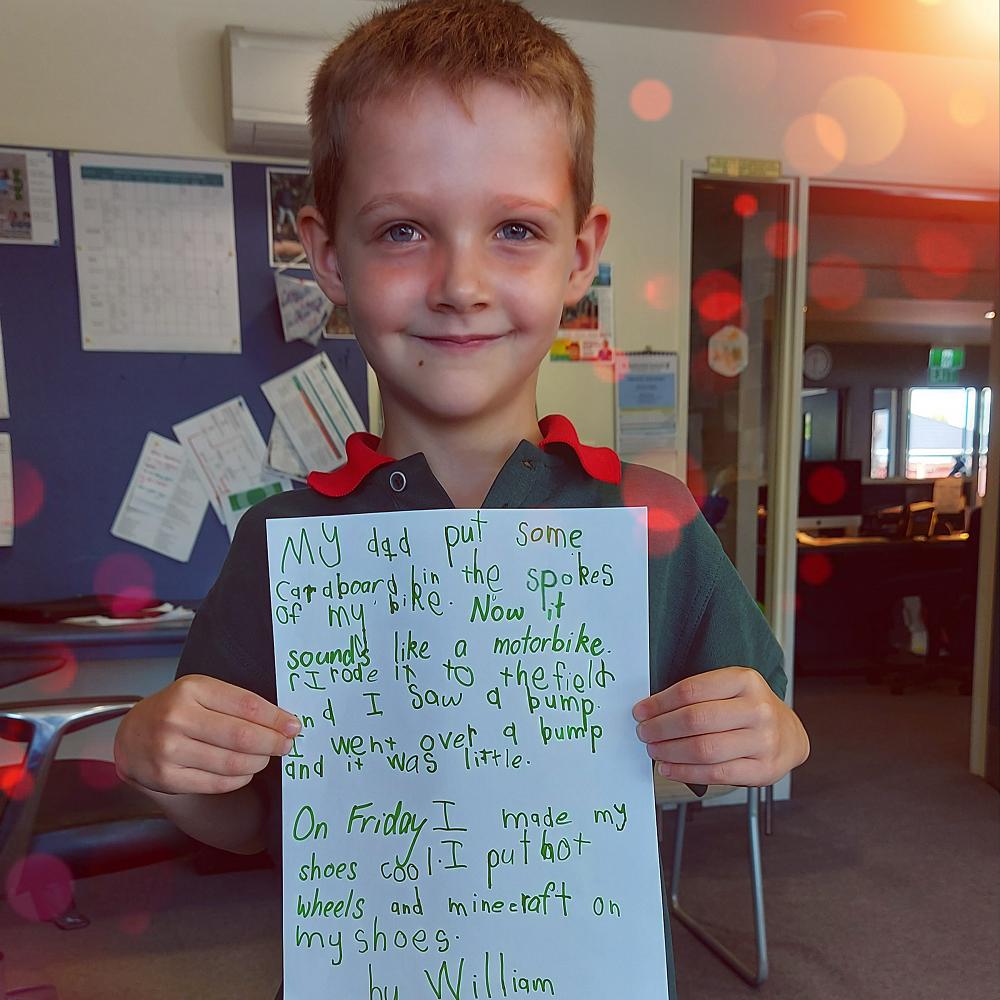 My dad put some
cardboard in the spokes
of my bike. Now it
sounds like a motorbike.
I rode it to the field
and I saw a bump.
I went over a bump
and it was little.
On Friday I made my
shoes cool. I put hot
wheels and minecraft on
my shoes.
by William
EXIT